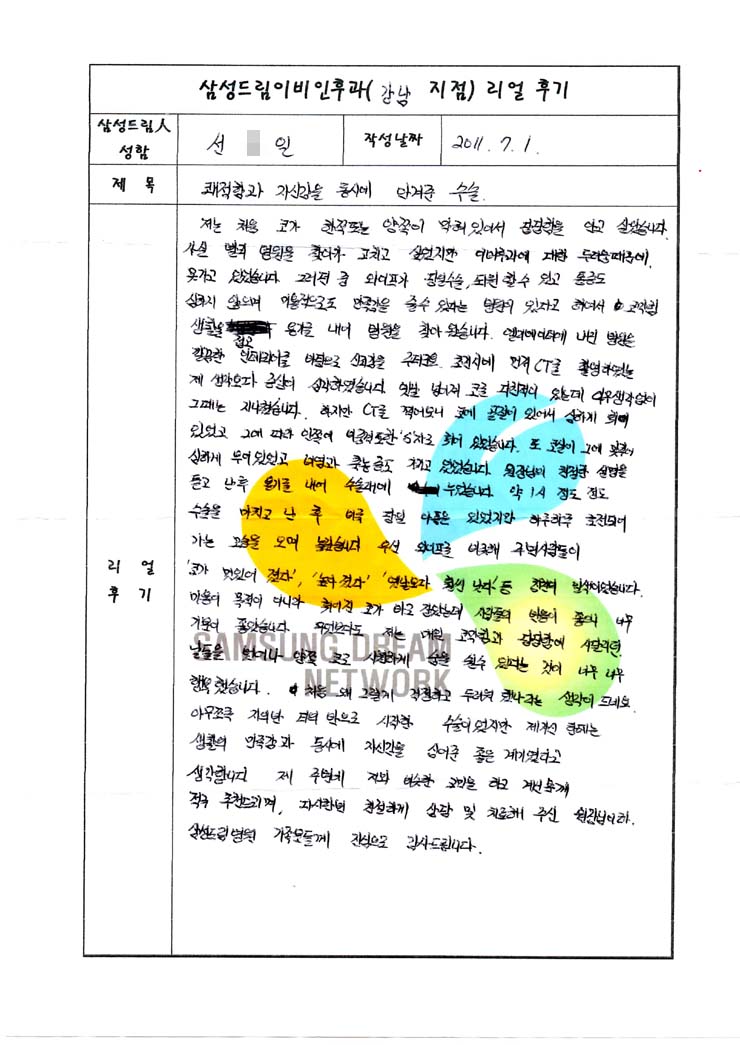 삼성드림이비인후과(강남 지점) 리얼 후기
삼성드림人
성함
선 일
작성날짜
2011. 7. 1.
제 목
쾌적함과 자신감을 동시에 안겨준 수술.
리 얼
후 기
저는 처음 코가 한쪽또는 양쪽이 막혀 있어서 답답함을 안고 살았습니다.
사실 빨리 병원을 찾아가 고치고 싶었지만 이비인후과에 대한 두려움때문에.
못가고 있었습니다. 그러던 중 와이프가 당일수술, 퇴원 할 수 있고 통증도
심하지 않으며 미용적으로도 만족감을 줄수 있다는 병원이 있다고 하여서 코막힘
생활을 접고 용기를 내어 병원을 찾아 왔습니다. 엘리베이터에 내린 병원은
깔끔한 인테리어를 바탕으로 신뢰감을 주더군요. 초진시에 먼저 CT를 촬영하였는
제 생각보다 증상이 심각하였습니다. 옛날 넘어져 코를 다친적이 있는데 아무생각없이
그때는 지나쳤습니다. 하지만 CT를 찍어보니 코에 골절이 있어서 심하게 휘어
있었고 그에 따라 안쪽에 비중격또한 'S'자로 휘어 있었습니다. 또 코살이 그에 맞추어
심하게 부어있었고 비염과 축농증도 가지고 있었습니다. 원장님의 친절한 설명을
듣고 난후 용기를 내어 수술대에 누웠습니다. 약 1시간 정도
수술을 마치고 난 후 비록 당일 아픔은 있었지만 하루하루 호전되어
가는 모습을 보며 놀랐습니다. 우선 와이프를 비롯해 주변사람들이
'코가 멋있어 졌다', '높아졌다' '옛날보다 훨씬 낫다' 등 칭찬이 끊이없었습니다.
미용이 목적이 아니라 휘어진 코가 바로 잡았는데 사람들의 반응이 좋으니 너무
기분이 좋았습니다. 무엇보다도 저는 매일 코막힘과 답답함에 시달리던
날들을 벗어나 양쪽 코로 시원하게 숨을 쉴수 있다는 것이 너무 너무
행복했습니다. 처음 왜 그렇게 걱정하고 두려워 했나라는 생각이 드네요.
아무쪼록 시작한 수술이었지만 제자신 한테는
생활의 만족감과 동시에 자신감을 심어준 좋은 계기였다고
생각합니다. 제 주변에 저와 비슷한 고민을 하고 계신분께
적극 추천드리며, 자상하면 친절하게 상담 및 치료해 주신 원장님이하.
삼성드림병원 가족분들께 진심으로 감사드립니다.
SAMSUNG DREAM
NETWORK